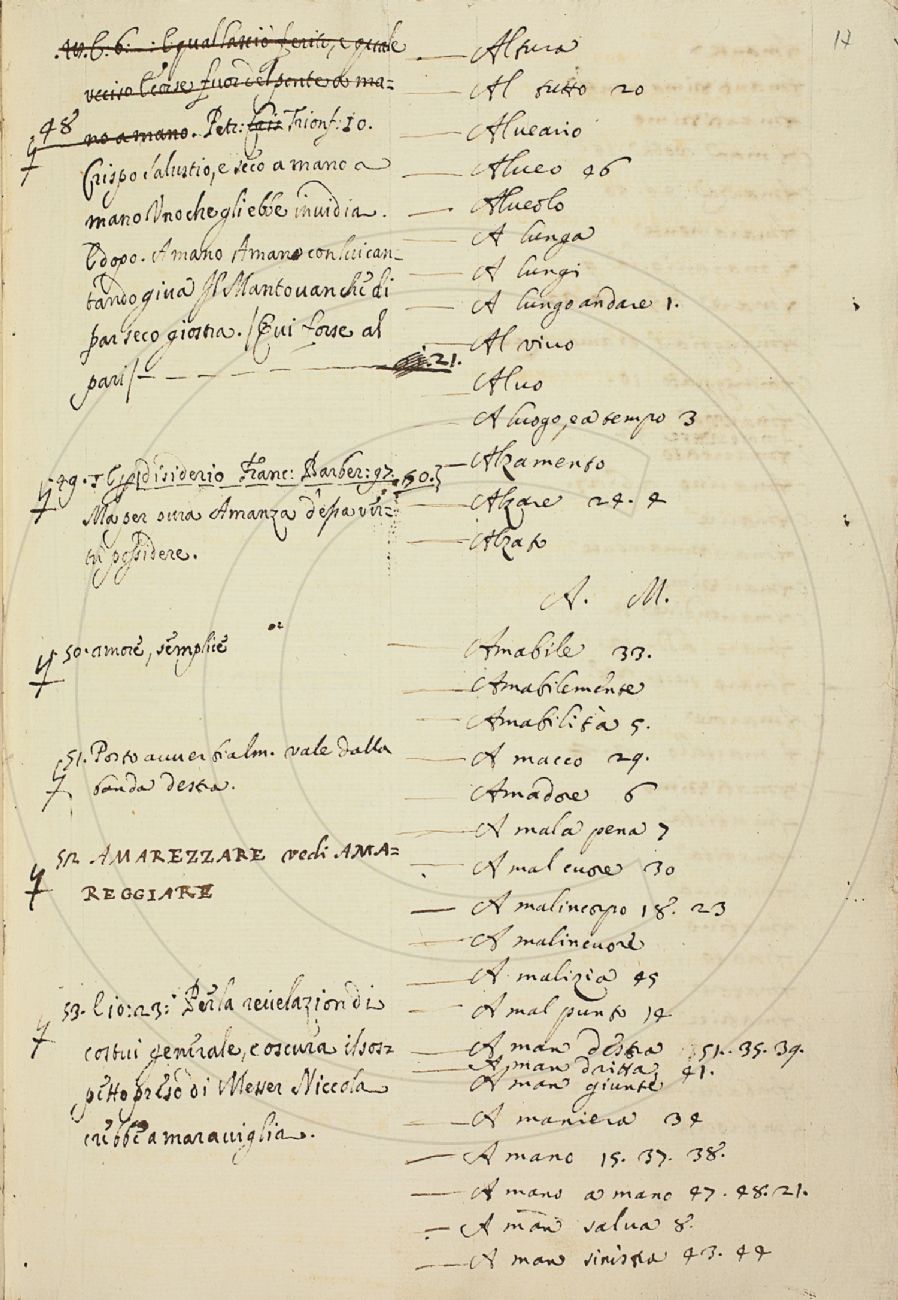 17
E qual lasciò ferito, e quale
ucciso l'corse fuor del ponte a ma=
no a mano. Petr: Trionf: 10.
48
Crispo Salustio, e seco a mano a
mano Uno che gli ebbe invidia.
E dopo. A mano A mano con lui can=
tando giva Il Mantovan che di
par seco giostra. /Qui forse al
pari/ 21.
49. disiderio Franc: Barber: 97. 60.
Ma per pura Amanza d'essa vir=
tù possidere.
50. amore, semplice
51. Posto avverbialm. vale dalla
banda destra.
52 AMAREZZARE vedi AMA=
REGGIARE
53. Lio: 23: Per la revelazion di
costui generale, e oscura il sos=
petto preso di Messer Niccola
crebbe a maraviglia.
Altura
Al tutto 20
Alveario
Alveo 46
Alveolo
A lunga
A lungi
A lungo andare 1.
Al vivo
Alvo
A luogo, e a tempo 3
Alzamento
Alzare 24. 4
Alzato
A. M.
Amabile 33.
Amabilmente
Amabilità 5.
A macco 29.
Amadore 6
A mala pena 7
A mal cuore 30
A malincorpo 18. 23
A malincuore
A malizia 45
A mal punto 14
A man destra 51. 35. 39.
A man dritta 41.
A man giunte
A maniera 34
A mano 15. 37. 38.
A mano a mano 47. 48. 21.
A man salva 8.
A man sinistra 43. 44